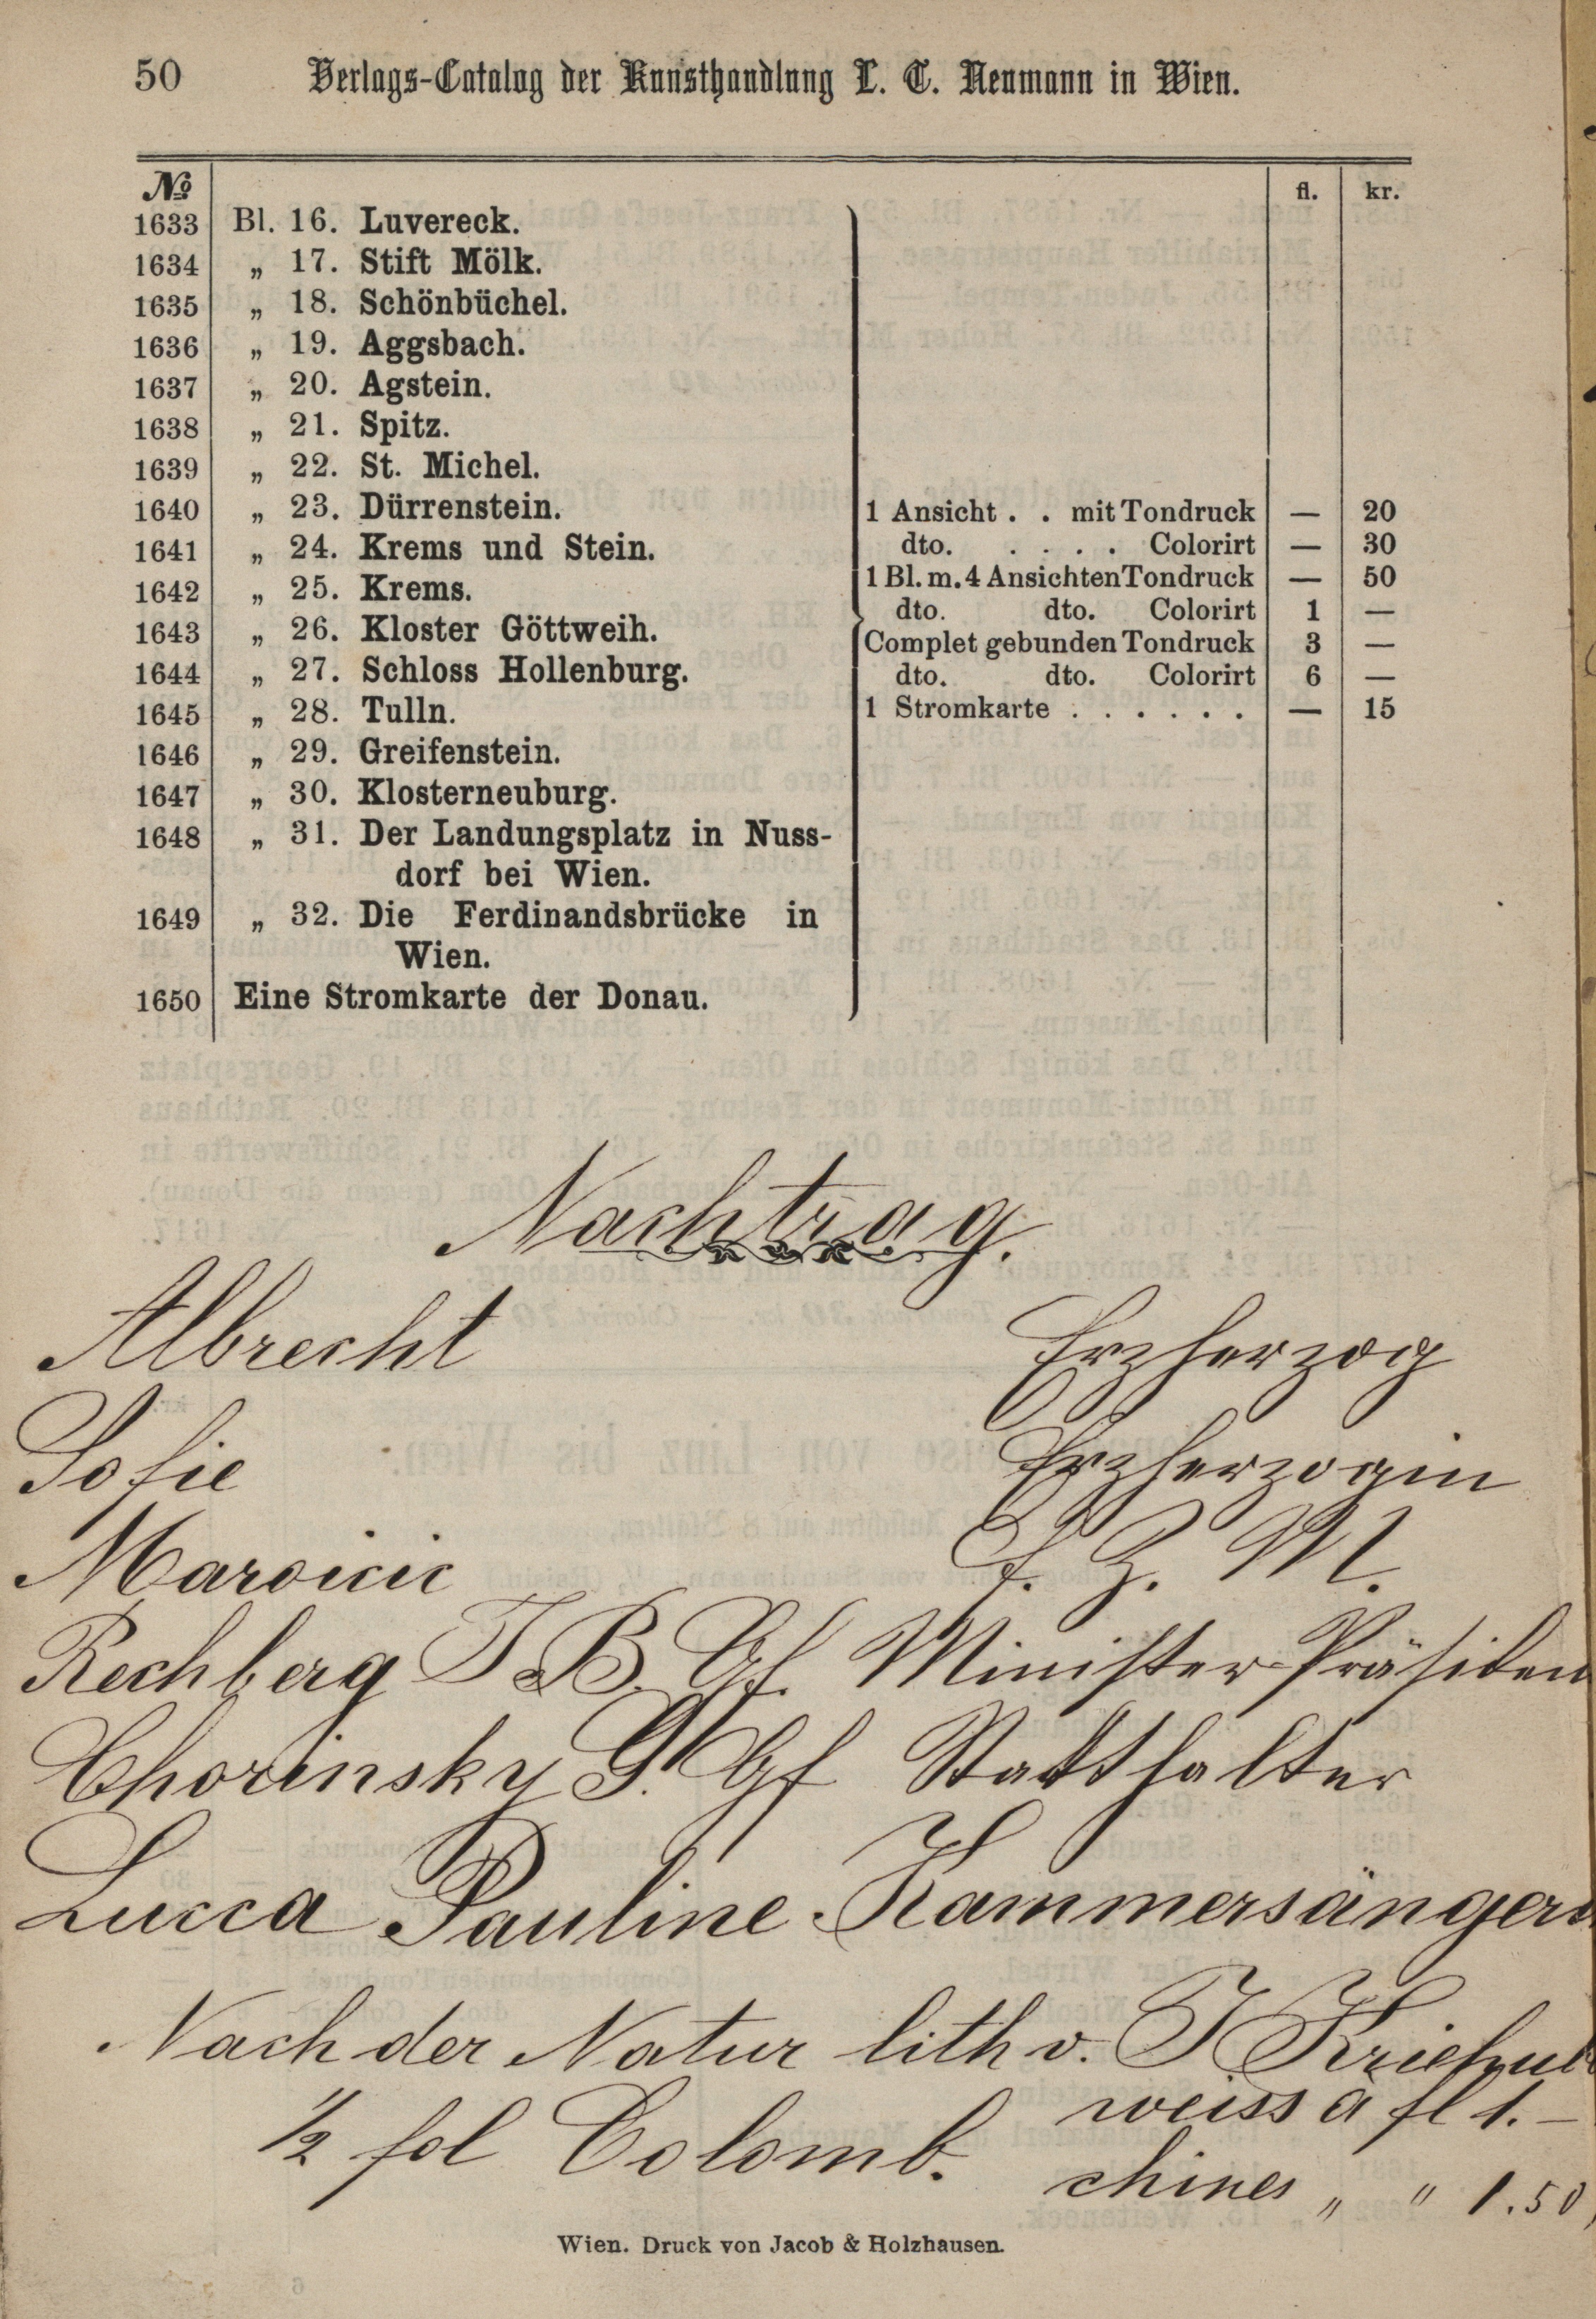 50 Verlags-Catalog der Kunsthandlung L. T. Neumann in Wien.
№ fl. kr.
1633 Bl. 16. Luvereck.
1634 „ 17. Stift Mölk.
1635 „ 18. Schönbüchel.
1636 „ 19. Aggsbach.
1637 „ 20. Agstein.
1638 „ 21. Spitz.
1639 „ 22. St. Michel.
1640 „ 23. Dürrenstein.
1641 „ 24. Krems und Stein.
1642 „ 25. Krems.
1643 „ 26. Kloster Göttweih.
1644 „ 27. Schloss Hollenburg.
1645 „ 28. Tulln.
1646 „ 29. Greifenstein.
1647 „ 30. Klosterneuburg.
1648 „ 31. Der Landungsplatz in Nuss-
dorf bei Wien.
1649 „ 32. Die Ferdinandsbrücke in
Wien.
1650 Eine Stromkarte der Donau.
1 Ansicht . . mit Tondruck — 20
dto. . . . . Colorirt — 30
1 Bl. m. 4 Ansichten Tondruck — 50
dto. dto. Colorirt 1 —
Complet gebunden Tondruck 3 —
dto. dto. Colorirt 6 —
1 Stromkarte . . . . . . — 15
Nachtrag.
Albrecht Erzherzog
Sofie Erzherzogin
Maroicic F. Z. M.
Rechberg J. B. Gf. Minister-Präsiden
Chorinsky G. Gf Statthalter
Lucca Pauline Kammersängerin
Nach der Natur lith v. J Kriehub
½ fol Colomb. weiss à fl 1.—
chines „ " 1.50
Wien. Druck von Jacob & Holzhausen.